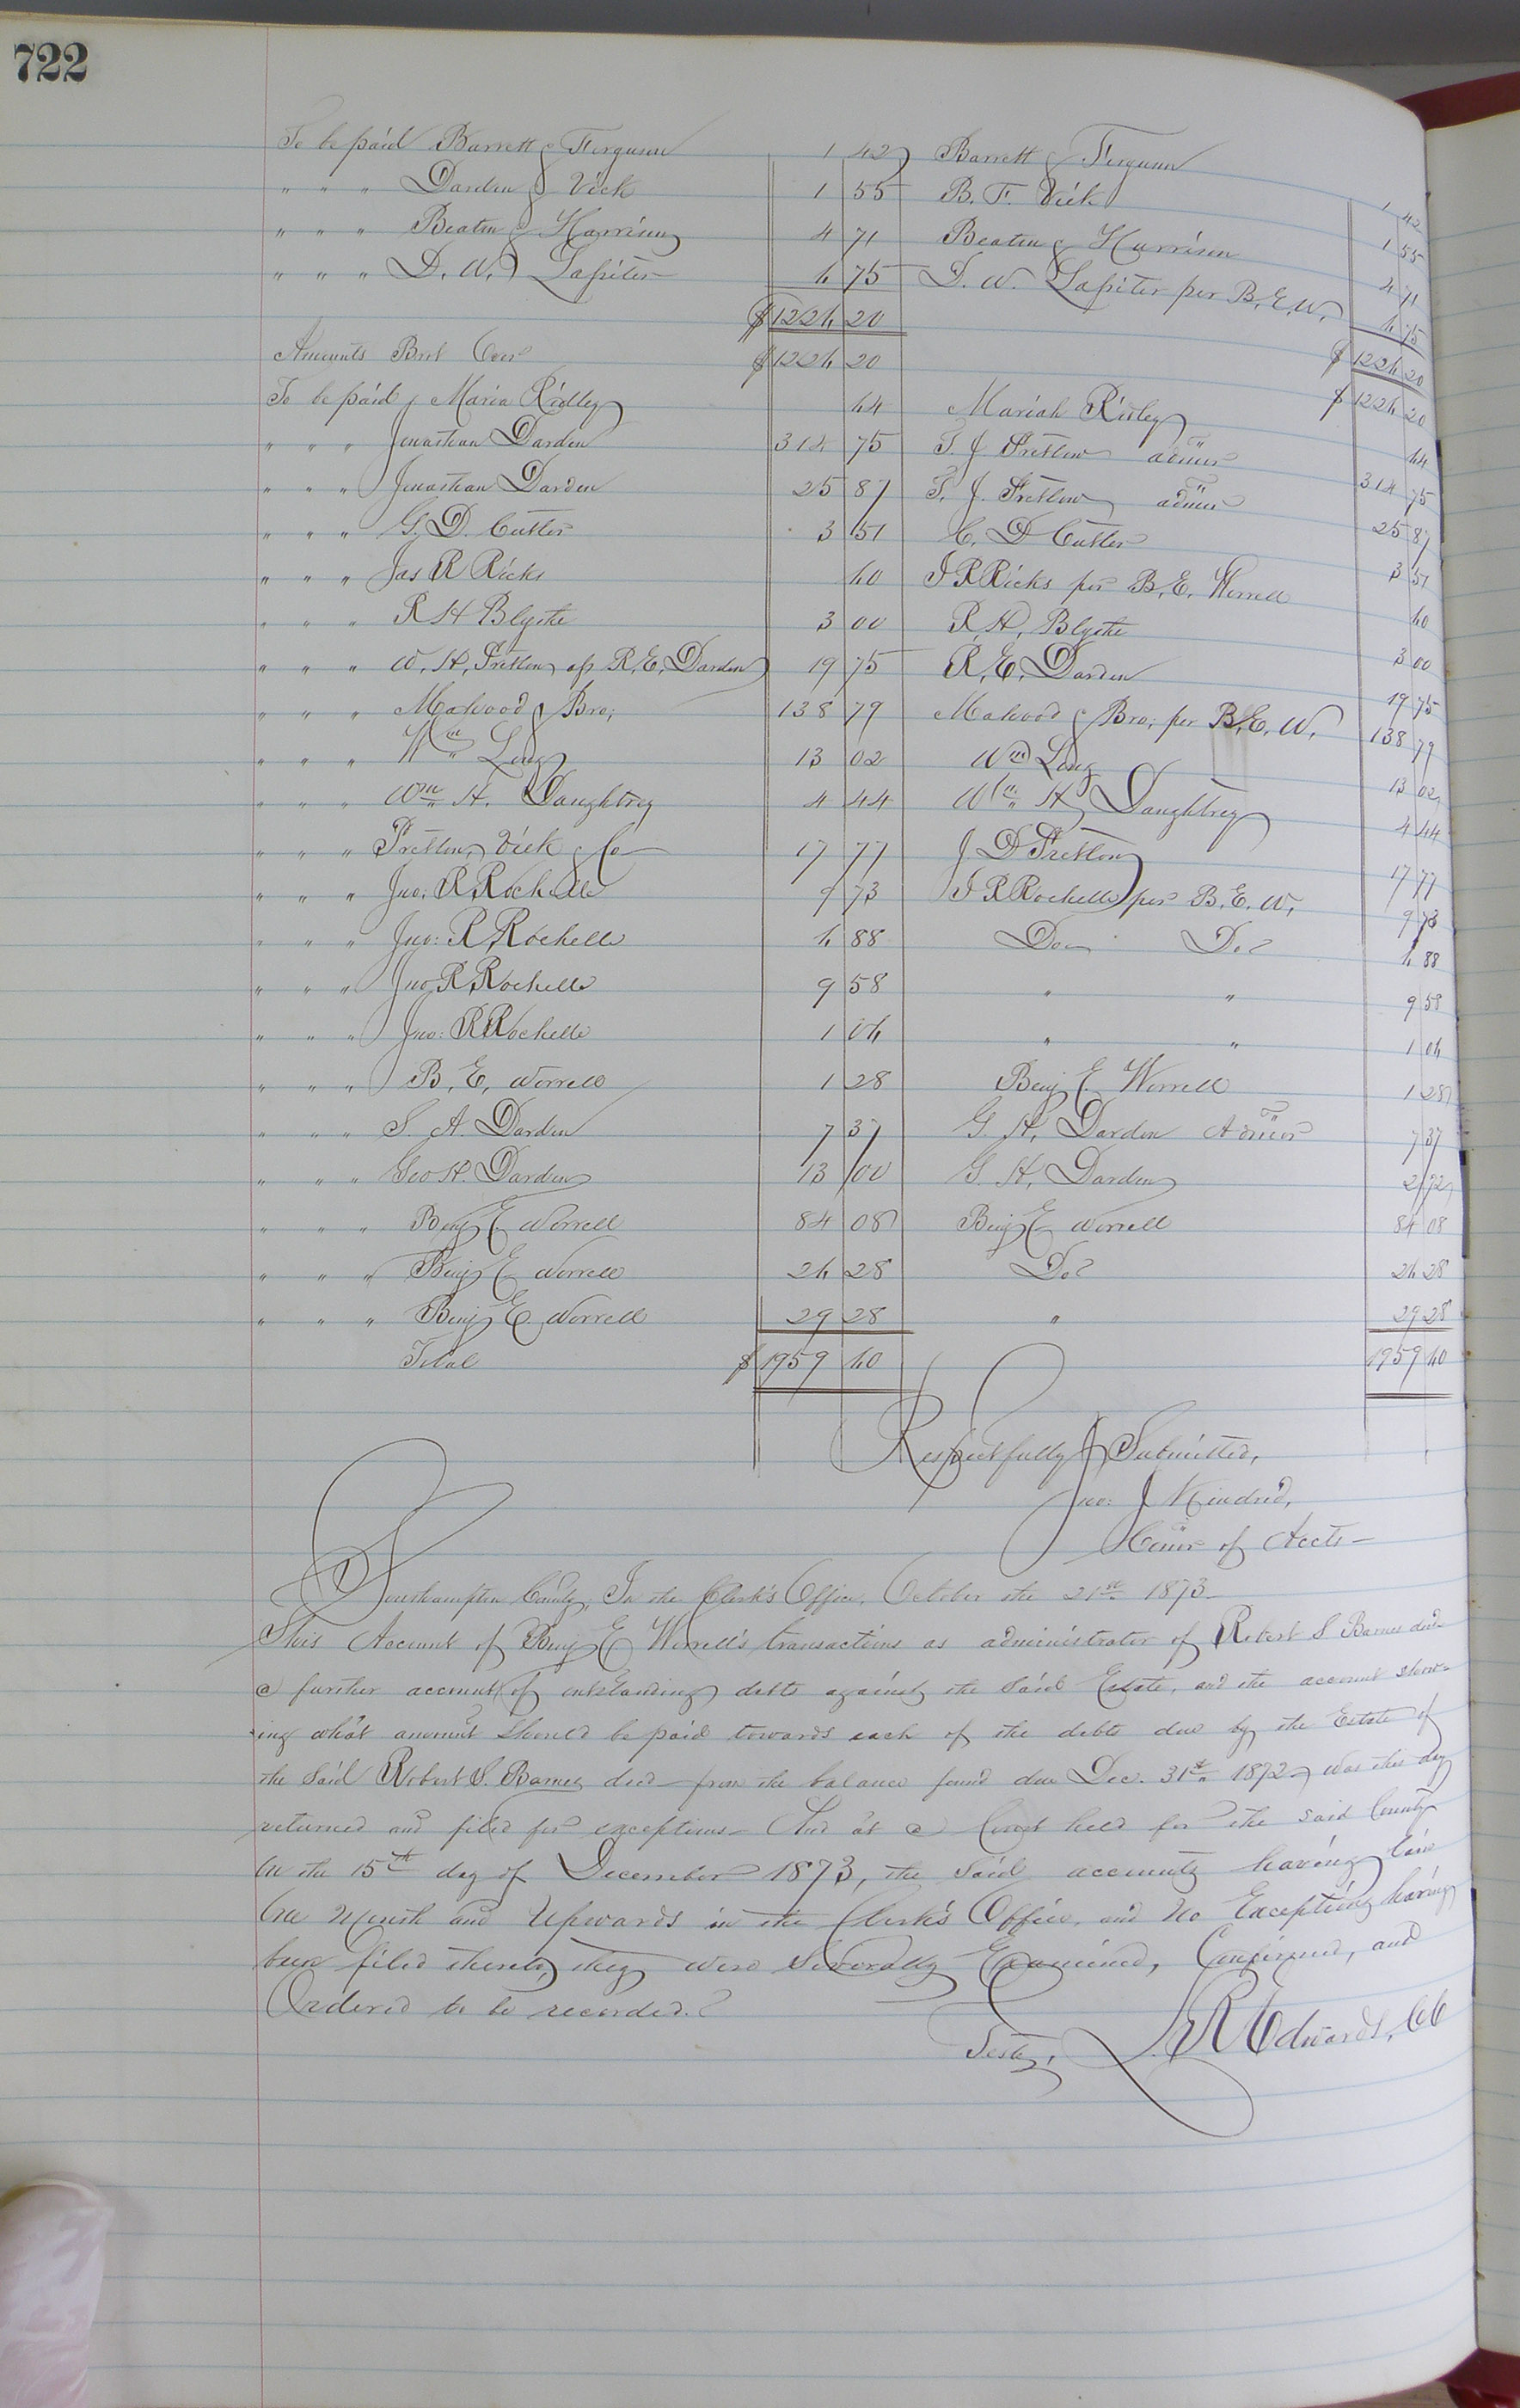 722
To be paid Barrett & Ferguson 1 42 Barrett & Ferguson 1 42
" " " Darden & Vick 1 55 B. F. Vick 1 55
" " " Beaton & Harrison 4 71 Beaton & Harrison 4 71
" " " D. W. Lasiter 6 75 D. W. Lasiter per B. E. W. 6 75
$1226 20 $1226 20
Amounts Brot Over $1226 20 $1226 20
To be paid Maria Ridley 64 Mariah Ridley 64
" " " Jonathan Darden 314 75 T. J. Pretlow admr 314 75
" " " Jonathan Darden 25 87 T. J. Pretlow admr 25 87
" " " G. D. Cutler 3 51 C. D Cutler 3 51
" " " Jas R Ricks 60 J R Ricks per B. E. Worrell 60
" " " R H Blythe 3 00 R. H. Blythe 3 00
" " " W. H. Pretlow, ass R. E. Darden 19 75 R. E. Darden 19 75
" " " Mahood & Bro; 138 79 Mahood & Bro; per B. E. W. 138 79
" " " Wm Long 13 02 Wm Long 13 02
" " " Wm H. Daughtrey 4 44 Wm H Daughtrey 4 44
" " " Pretlow, Vick & Co 17 77 J D Pretlow 17 77
" " " Jno: R Rochelle 9 73 J R Rochelle per B. E. W. 9 73
" " " Jno: R Rochelle 6 88 Do Do 6 88
" " " Jno R Rochelle 9 58 " " 9 58
" " " Jno: R Rochelle 1 06 " " 1 06
" " " B. E. Worrell 1 28 Benj E. Worrell 1 28
" " " S. A. Darden 7 37 G. H. Darden Admor 7 37
" " " Geo H. Darden 13 00 G. H. Darden
" " " Benj E Worrell 84 08 Benj E Worrell 84 08
" " " Benj E Worrell 26 28 Do 26 28
" " " Benj E. Worrell 29 28 " 29 28
Total $1959 60 1959 60
Respectfully Submitted,
Jno: J Kindred,
Comr of Accts
Southampton County, In the Clerk's Office, October the 21st 1873
This Account of Benj E Worrell's transactions as administrator of Robert S Barnes decd
a further account of outstanding debts against the said Estate, and the account show-
ing what amount should be paid towards each of the debts due by the Estate of
the said Robert S. Barnes decd from the balance found due Dec. 31st 1872, was this day
returned and filed for exceptions And at a Court held for the said County
On the 15th day of December 1873, the said accounts having lain
One Month and Upwards in the Clerk's Office, and No Exceptions having
been filed thereto, they were Severally Examined, Confirmed, and
Ordered to be recorded.
Teste, L. R Edwards, CC